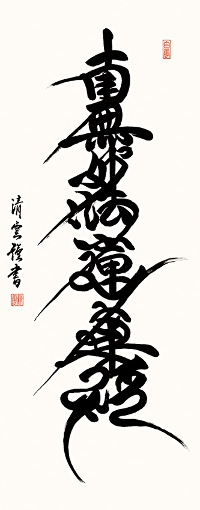 南無妙法蓮華経
清雲書